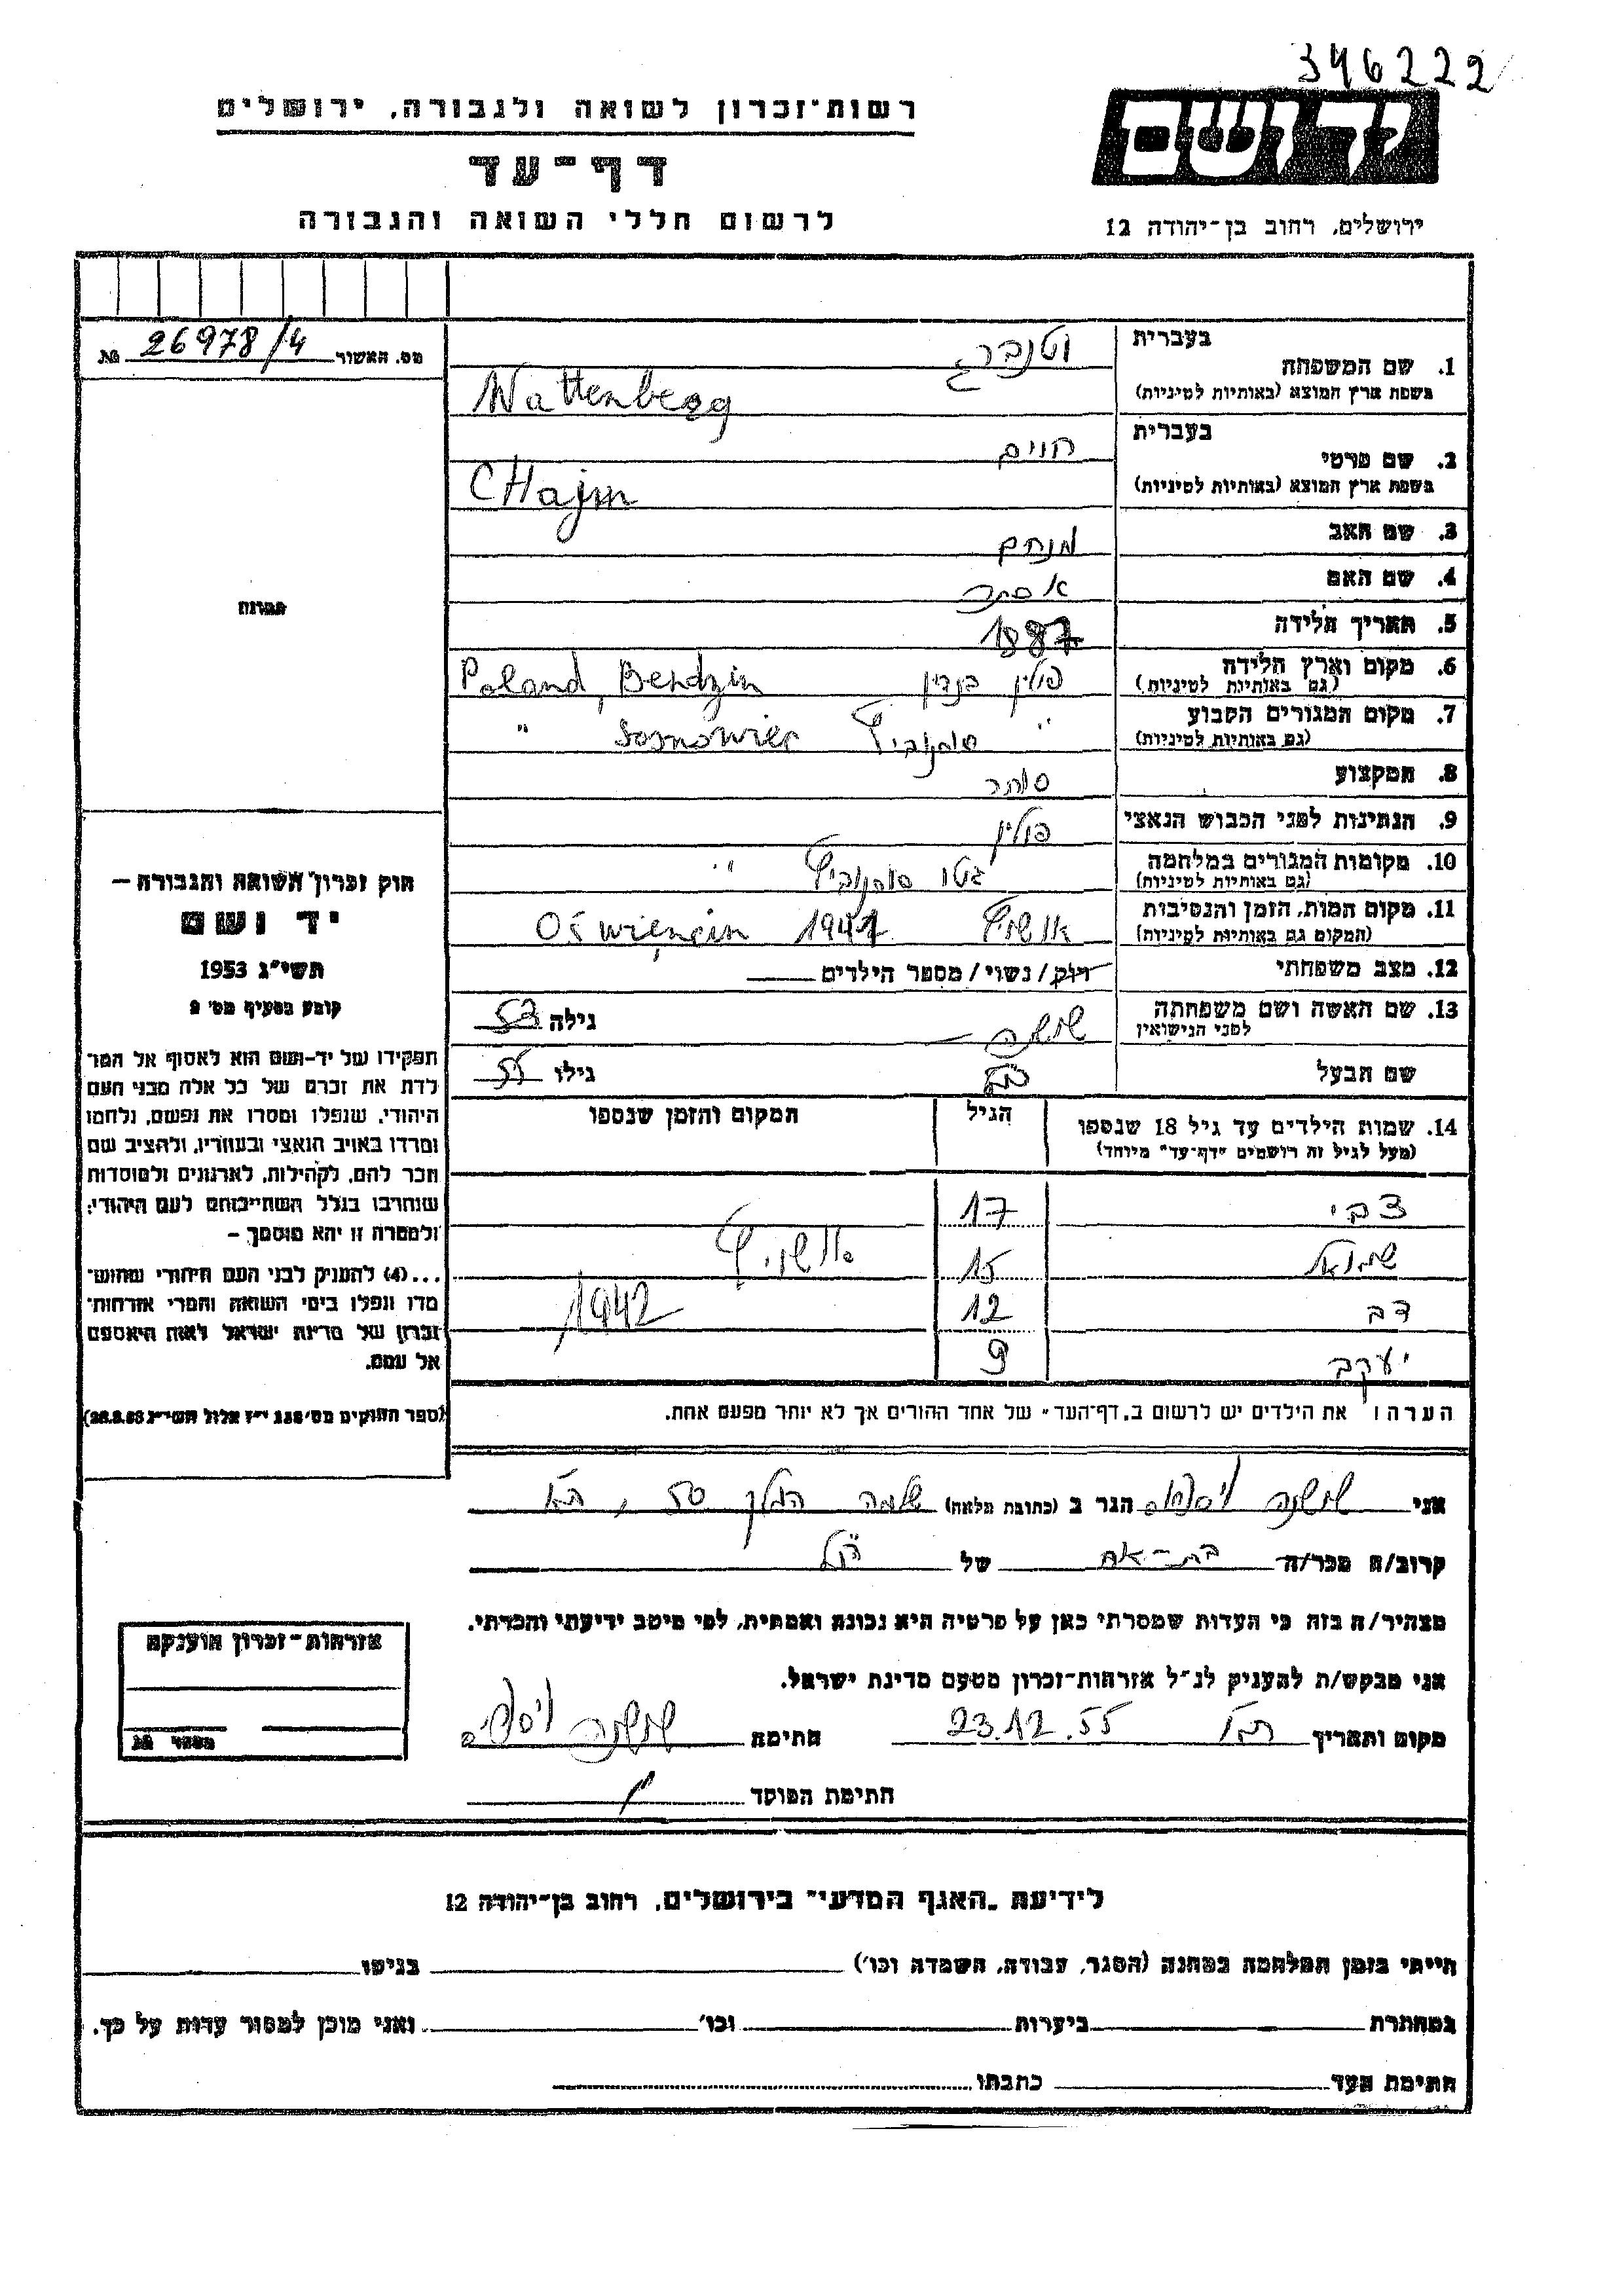 346222
יד ושם
ירושלים, רחוב בן־יהודה 12
רשות־זכרון לשואה ולגבורה, ירושלים
דף־עד
לרשום חללי השואה והגבורה
מס. האשור 26978/4 №
בעברית וטנברג
1. שם המשפחה
בשפת ארץ המוצא (באותיות לטיניות) Wattenberg
בעברית חיים
2. שם פרטי
בשפת ארץ המוצא (באותיות לטיניות) CHajm
3. שם האב מנחם
4. שם האם אסתר
5. תאריך הלידה 1887
6. מקום וארץ הלידה פולין בנדין Poland, Bendzin
(גם באותיות לטיניות)
7. מקום המגורים הקבוע " סוסנוביץ Sosnowiec "
(גם באותיות לטיניות)
8. המקצוע סוחר
9. הנתינות לפני הכבוש הנאצי פולין
10. מקומות המגורים במלחמה גטו סוסנוביץ "
(גם באותיות לטיניות)
11. מקום המות, הזמן והנסיבות אושויץ 1942 Oświęncin
(המקום גם באותיות לטיניות)
12. מצב משפחתי רווק/נשוי/מספר הילדים
13. שם האשה ושם משפחתה שושנה – גילה 53
לפני הנישואין
שם הבעל גילו 55
14. שמות הילדים עד גיל 18 שנספו הגיל המקום והזמן שנספו
(מעל לגיל זה רושמים "דף־עד" מיוחד)
צבי 17
שמואל 15 אושויץ
דב 12 1942
יעקב 9
הערה: את הילדים יש לרשום ב„דף־העד" של אחד ההורים אך לא יותר מפעם אחת.
תמונה
חוק זכרון השואה והגבורה –
יד ושם
תשי"ג 1953
קובע בסעיף מס' 2
תפקידו של יד-ושם הוא לאסוף אל המו־
לדת את זכרם של כל אלה מבני העם
היהודי, שנפלו ומסרו את נפשם, נלחמו
ומרדו באויב הנאצי ובעוזריו, ולהציב שם
וזכר להם, לקהילות, לארגונים ולמוסדות
שנחרבו בגלל השתייכותם לעם היהודי;
ולמטרה זו יהא מוסמך –
...(4) להעניק לבני העם היהודי שהוש־
מדו ונפלו בימי השואה והמרי אזרחות־
זכרון של מדינת ישראל לאות היאספם
אל עמם.
(ספר החוקים מס' 132 י"ז אלול תשי"ג 28.8.53)
אני שושנה הגר ב (כתובת מלאה) שלמה המלך 50, ת"א
קרוב/ה מכר/ה בת-אח של הנ"ל
מצהיר/ה בזה כי העדות שמסרתי כאן על פרטיה היא נכונה ואמתית, לפי מיטב ידיעתי והכרתי.
אני מבקש/ת להעניק לנ"ל אזרחות־זכרון מטעם מדינת ישראל.
מקום ותאריך ת"א 23.12.55 חתימה שושנה
חתימת הפוקד
אזרחות־זכרון הוענקה
מספר №
לידיעת „האגף המדעי" בירושלים, רחוב בן־יהודה 12
הייתי בזמן המלחמה במחנה (הסגר, עבודה, השמדה וכו') בגיטו
במחתרת ביערות וכו' ואני מוכן למסור עדות על כך.
חתימת העד כתבתו